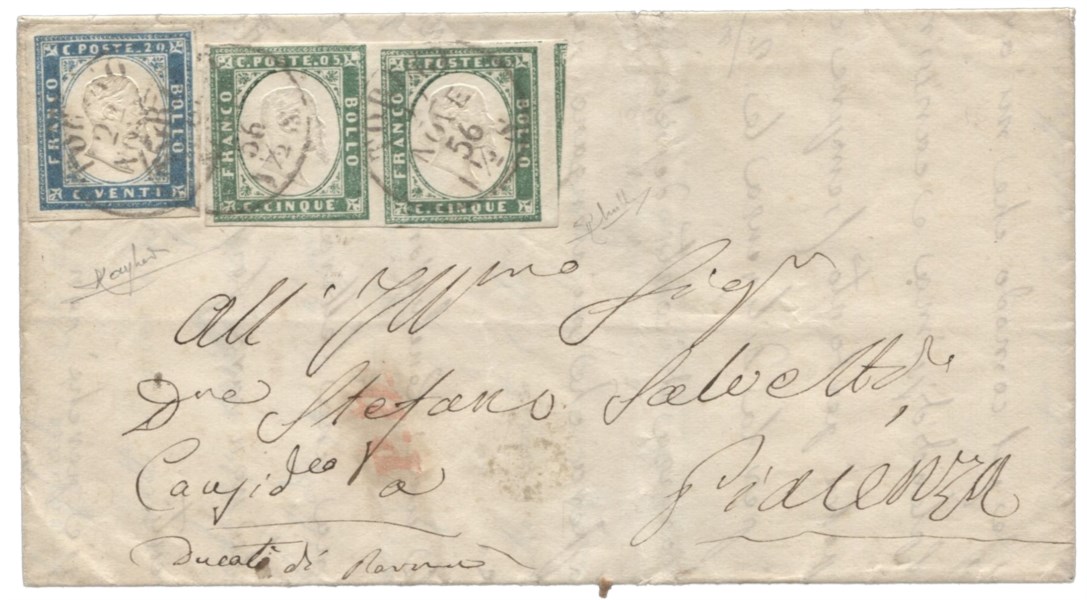 C. POSTE. 20
FRANCO
BOLLO
C. VENTI
C. POSTE. 05
FRANCO
BOLLO
C. CINQUE
C. POSTE. 05
FRANCO
BOLLO
C. CINQUE
AGTE
56
All' Illmo Sigr
Dre Stefano Salvetti
a Piacenza
Ducato di